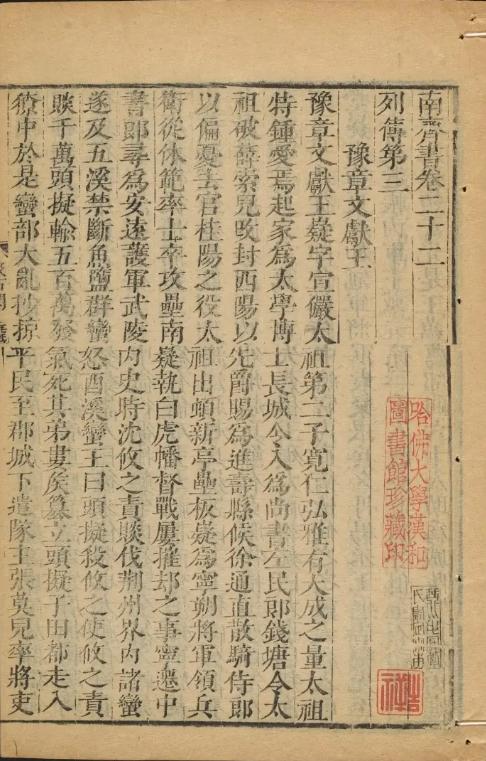 南齊書卷二十二
列傳第三
豫章文獻王
豫章文獻王嶷字宣儼太祖第二子寬仁弘雅有大成之量太祖
特鍾愛焉起家爲太學博士長城令入爲尚書左民郎錢塘令太
祖破薛索兒改封西陽以先爵賜爲進壽縣侯徐通直散騎侍郎
以偏憂去官桂陽之役太祖出頓新亭壘板嶷爲寧朔將軍領兵
衞從休範率士卒攻壘南嶷執白虎幡督戰屢摧却之事寧遷中
書郎尋爲安遠護軍武陵內史時沈攸之責賧伐荆州界內諸蠻
遂及五溪禁斷魚鹽群蠻怒酉溪蠻王田頭擬殺攸之使攸之責
賧千萬頭擬輸五百萬發氣死其弟婁侯簒立頭擬子田都走入
獠中於是蠻部大亂抄掠平民至郡城下遣隊主張莫兒率將吏
哈佛大學漢和
圖書館珍藏印